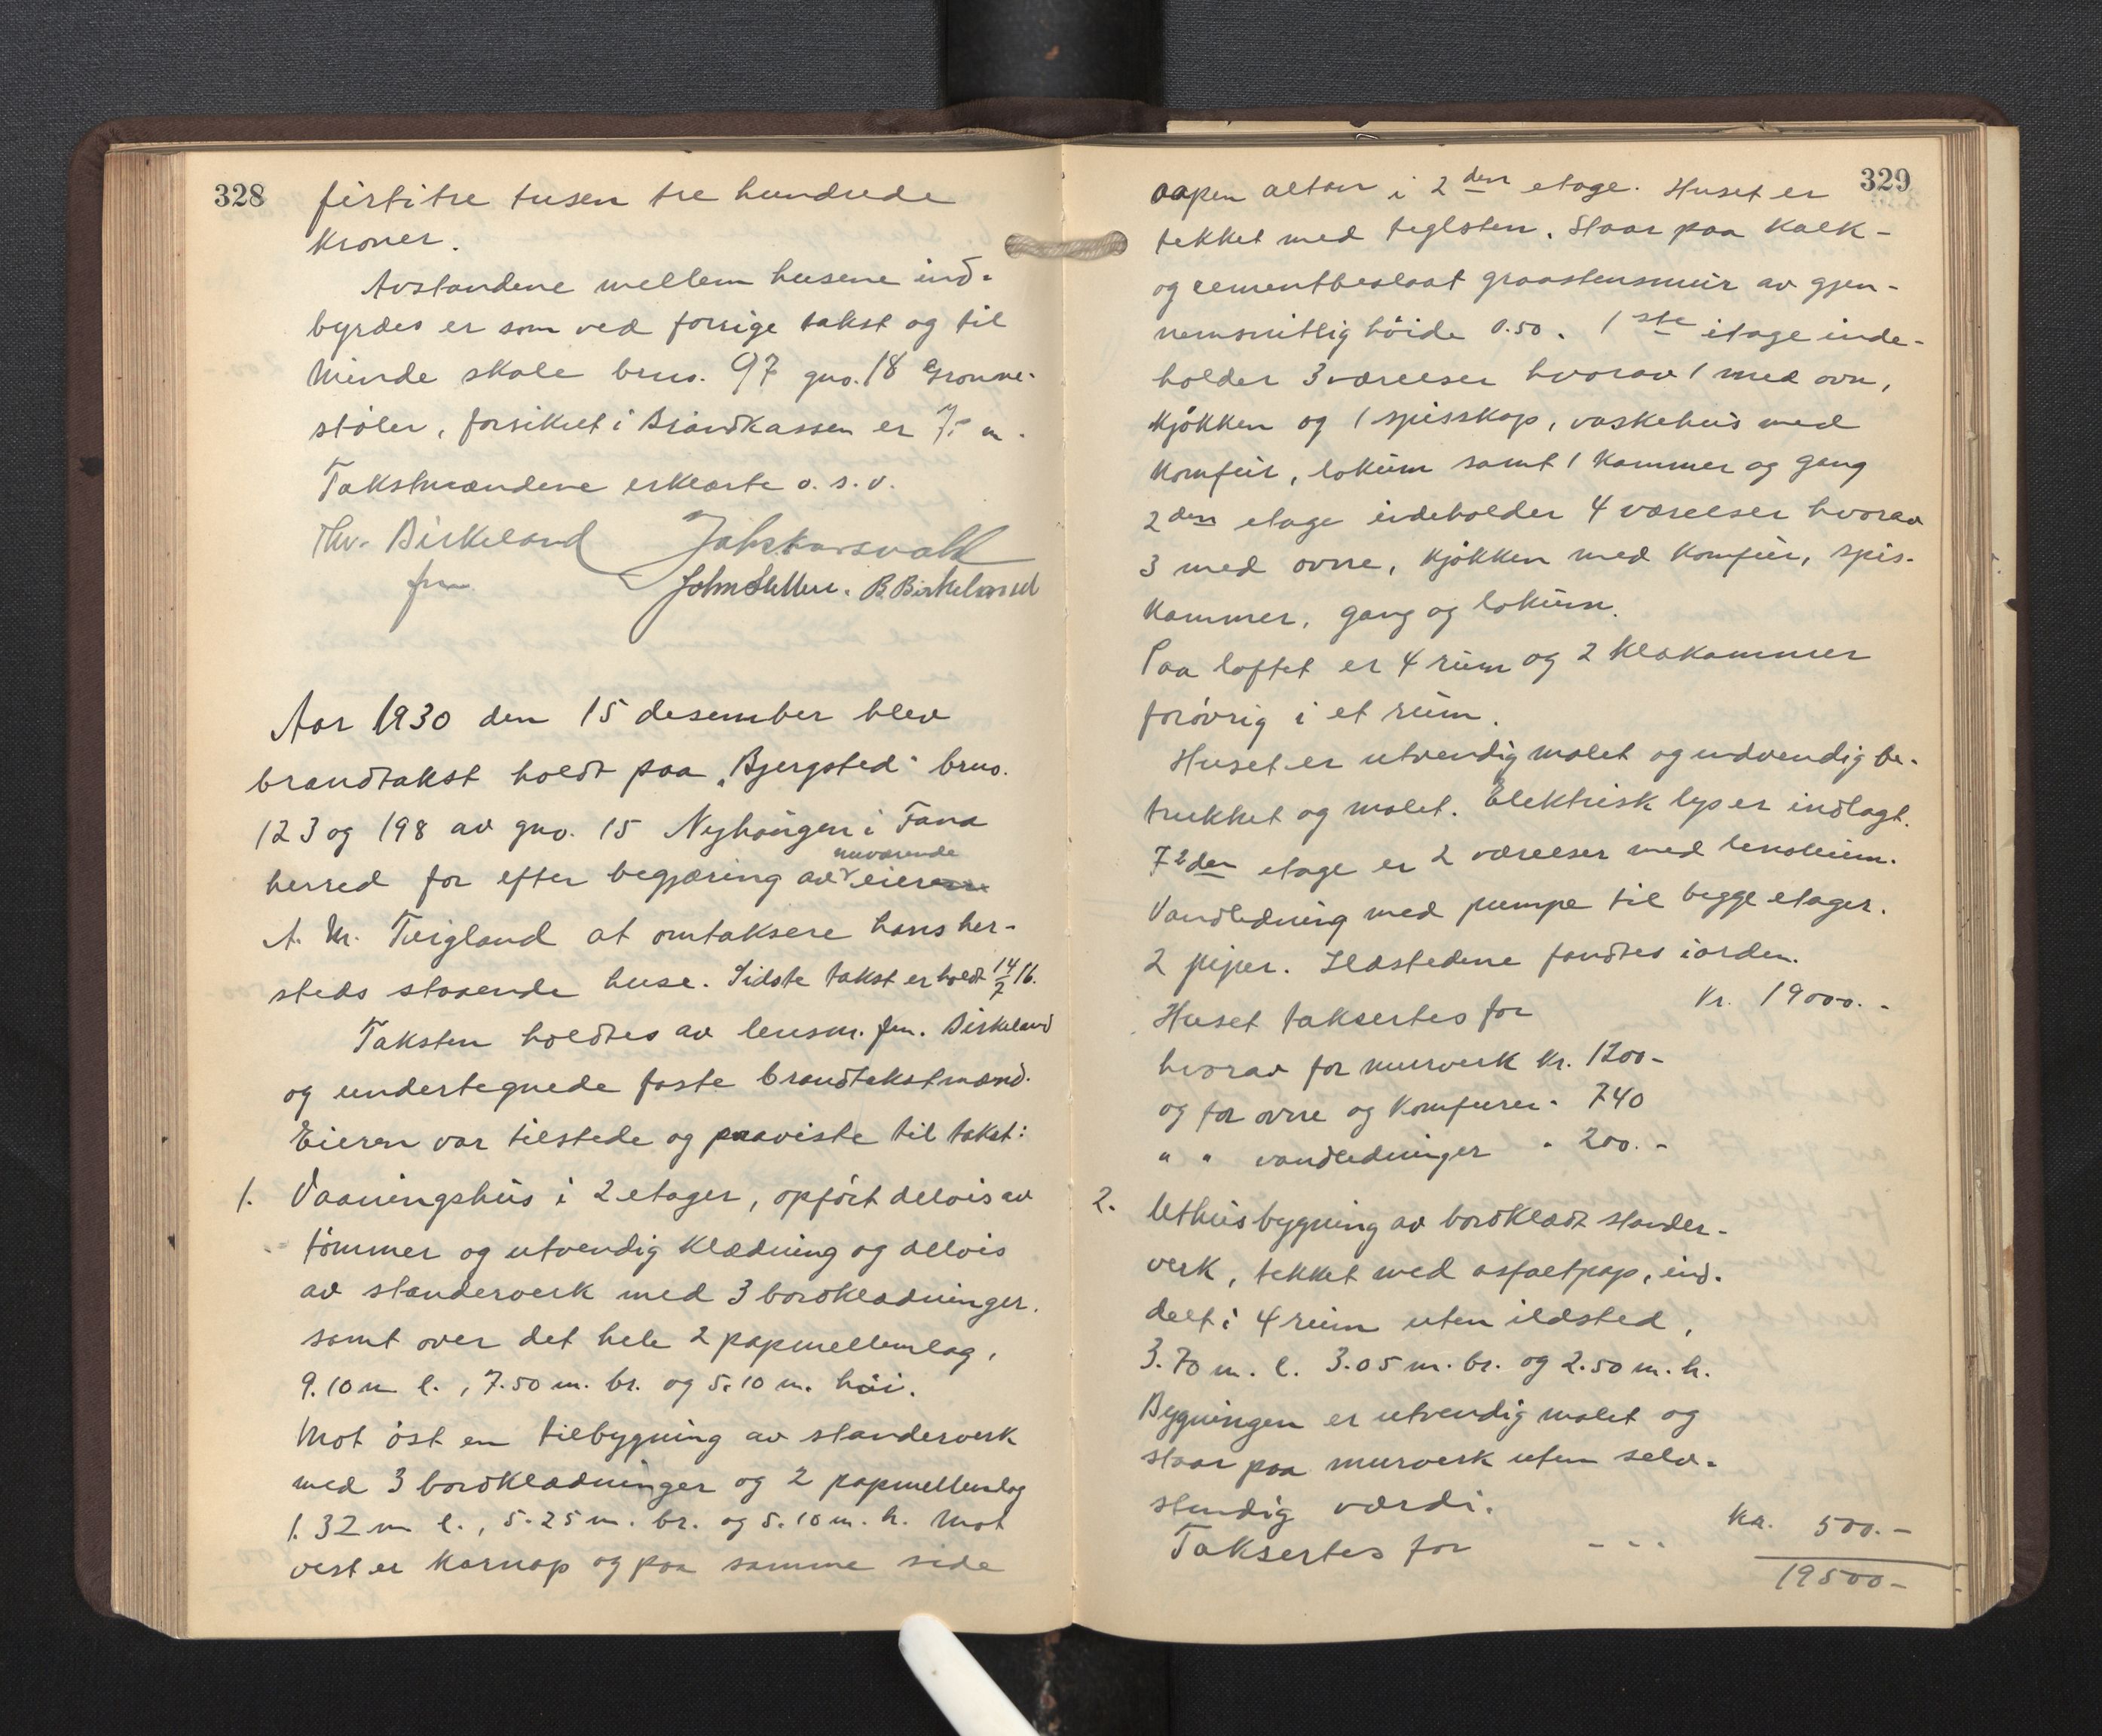 328
firtitre tusen tre hundrede
kroner.
Avstandene mellem husene ind-
byrdes er som ved forrige takst og til
Minde skole brno. 97 gno. 18 Grønne-
støler, forsikret i Brandkassen er 75 m.
Takstmændene erklærte o. s. v.
Thv. Birkeland
fm. John Sletten. B. Birkeland
Aar 1930 den 15 desember blev
brandtakst holdt paa „Bjergsted" brno.
123 og 198 av gno. 15 Nyhaugen i Fana
nuværende
herred for efter begjæring av eieren
A. Kr. Tveigland at omtaksere hans her-
steds staaende huse. Sidste takst er holdt 14/7 16.
Taksten holdtes av lensm. fm. Birkeland
og undertegnede faste brandtakstmænd.
Eieren var tilstede og paaviste til takst:
1. Vaaningshus i 2 etager, opført delvis av
tømmer og utvendig klædning og delvis
av standerverk med 3 bordklædninger.
samt over det hele 2 papmellemlag,
9.10 m l., 7.50 m. br. og 5.10 m. høi.
Mot øst en tilbygning av standerverk
med 3 bordklædninger og 2 papmellemlag
1.32 m l., 5.25 m. br. og 5.10 m. h. Mot
vest er karnap og paa samme side
329
aapen altan i 2den etage. Huset er
tekket med teglsten. Staar paa kalk-
og cementbeslaat graastensmur av gjen-
nemsnitlig høide 0.50. 1ste etage inde-
holder 3 værelser hvorav 1 med ovn,
kjøkken og 1 spisskap, vaskehus med
komfur, lokum samt 1 kammer og gang
2den etage indeholder 4 værelser hvorav
3 med ovne, kjøkken med komfur, spis-
kammer, gang og lokum.
Paa loftet er 4 rum og 2 klækammer
forøvrig i et rum.
Huset er utvendig malet og indvendig be-
trukket og malet. Elektrisk lys er indlagt.
I 2den etage er 2 værelser med linoleum.
Vandledning med pumpe til begge etager.
2 piper. Ildstedene fandtes iorden.
Huset taksertes for kr. 19000.-
hvorav for murverk kr. 1200-
og for ovne og komfurer " 740
" " vandledninger " 200.-
2. Uthusbygning av bordklædt stander-
verk, tekket med asfaltpap, ind-
delt i 4 rum uten ildsted,
3.70 m. l. 3.05 m. br. og 2.50 m. h.
Bygningen er utvendig malet og
staar paa murverk uten selv-
stendig værdi.
Taksertes for - - - kr. 500.-
19500-